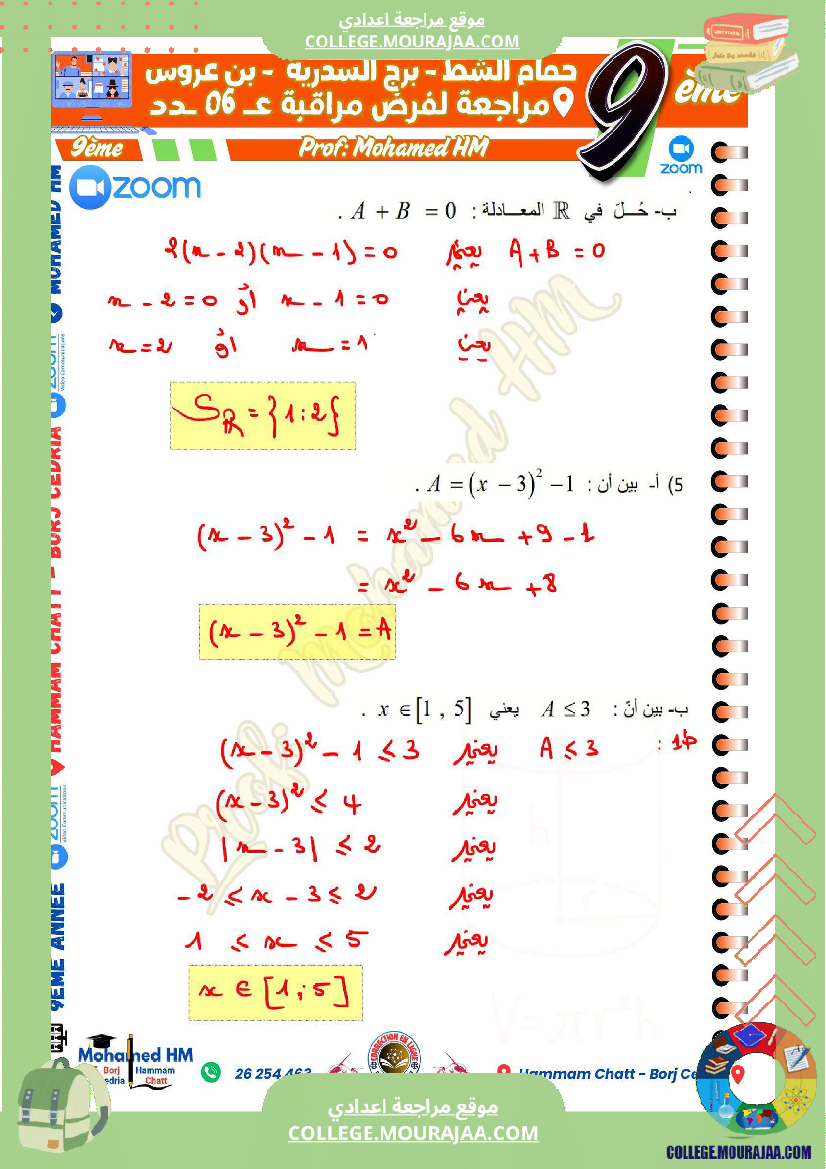 موقع مراجعة اعدادي
COLLEGE.MOURAJAA.COM
حمام الشط - برج السدرية - بن عروس
مراجعة لفرض مراقبة عـ 06 ـدد
9
ème
9ème
Prof: Mohamed HM
zoom
zoom
ب- حُـــلّ في ℝ المعـــادلة : A + B = 0 .
A + B = 0 يعني 2(x - 2)(x - 1) = 0
يعني x - 1 = 0 أو x - 2 = 0
يعني x = 1 أو x = 2
S_ℝ = {1 ; 2}
5) أ- بين أن : A = (x - 3)² - 1 .
(x - 3)² - 1 = x² - 6x + 9 - 1
= x² - 6x + 8
(x - 3)² - 1 = A
ب- بين أنّ : A ≤ 3 يعني x ∈ [1 , 5] .
A ≤ 3 يعني (x - 3)² - 1 ≤ 3
يعني (x - 3)² ≤ 4
يعني |x - 3| ≤ 2
يعني -2 ≤ x - 3 ≤ 2
يعني 1 ≤ x ≤ 5
x ∈ [1 ; 5]
Prof: Mohamed HM
h
r
V = πr²h
9EME ANNEE
zoom
Video Communications
HAMMAM CHATT - BORJ CEDRIA
zoom
Video Communications
MOHAMED HM
Mohamed HM
Borj
Hammam
Chatt
26 254 463
CORRECTION EN LIGNE
Hammam Chatt - Borj Ce
موقع مراجعة اعدادي
COLLEGE.MOURAJAA.COM
COLLEGE.MOURAJAA.COM